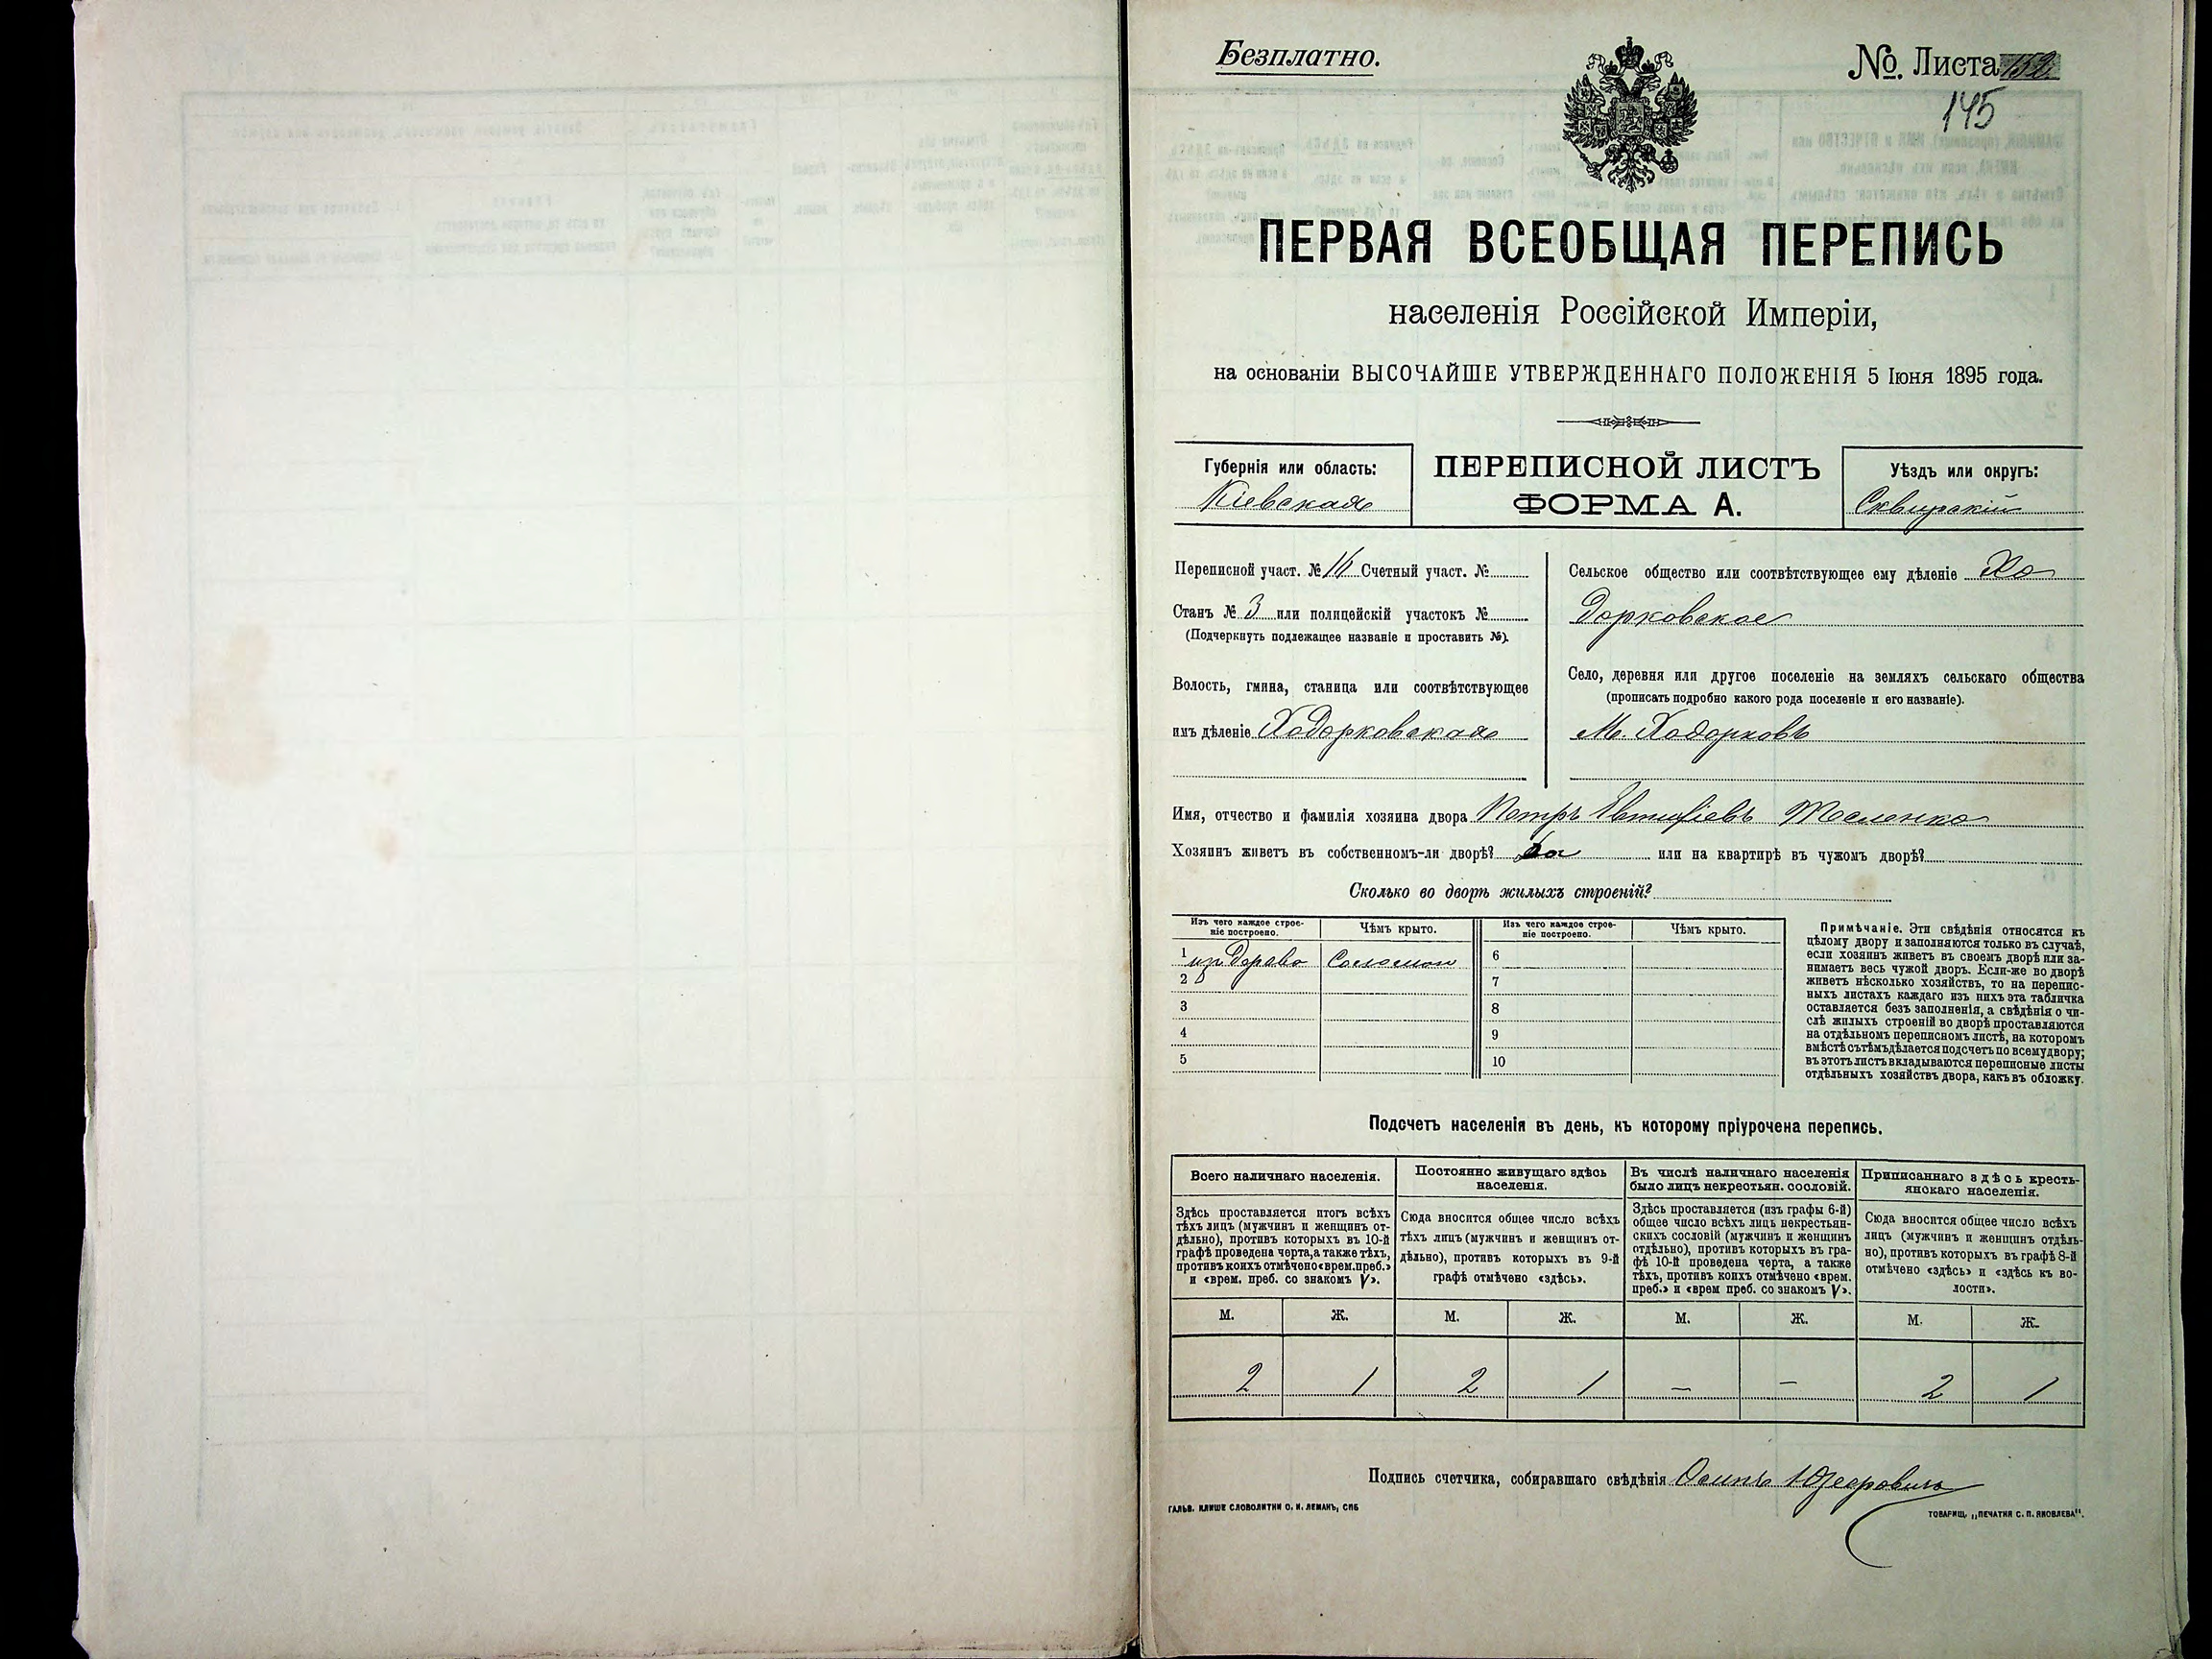 Безплатно.
№. Листа 152
145
ПЕРВАЯ ВСЕОБЩАЯ ПЕРЕПИСЬ
населенія Россійской Имперіи,
на основаніи ВЫСОЧАЙШЕ УТВЕРЖДЕННАГО ПОЛОЖЕНІЯ 5 Іюня 1895 года.
Губернія или область:
Кіевская
ПЕРЕПИСНОЙ ЛИСТЪ
ФОРМА А.
Уѣздъ или округъ:
Сквирскій
Переписной участ. № 14 Счетный участ. №
Станъ № 3 или полицейскій участокъ №
(Подчеркнуть подлежащее названіе и проставить №).
Волость, гмина, станица или соотвѣтствующее
имъ дѣленіе Ходорковская
Сельское общество или соотвѣтствующее ему дѣленіе Хо
дорковское
Село, деревня или другое поселеніе на земляхъ сельскаго общества
(прописать подробно какого рода поселеніе и его названіе).
М. Ходорковъ
Имя, отчество и фамилія хозяина двора Петръ Евтифіевъ Тесленко
Хозяинъ живетъ въ собственномъ-ли дворѣ? Да или на квартирѣ въ чужомъ дворѣ?
Сколько во дворѣ жилыхъ строеній?
Изъ чего каждое строе-
ніе построено.
Чѣмъ крыто.
Изъ чего каждое строе-
ніе построено.
Чѣмъ крыто.
1 изъ дерева Соломой 6
2 7
3 8
4 9
5 10
Примѣчаніе. Эти свѣдѣнія относятся къ
цѣлому двору и заполняются только въ случаѣ,
если хозяинъ живетъ въ своемъ дворѣ или за-
нимаетъ весь чужой дворъ. Если-же во дворѣ
живетъ нѣсколько хозяйствъ, то на перепис-
ныхъ листахъ каждаго изъ нихъ эта табличка
оставляется безъ заполненія, а свѣдѣнія о чи-
слѣ жилыхъ строеній во дворѣ проставляются
на отдѣльномъ переписномъ листѣ, на которомъ
вмѣстѣ съ тѣмъ дѣлается подсчетъ по всему двору;
въ этотъ листъ вкладываются переписные листы
отдѣльныхъ хозяйствъ двора, какъ въ обложку.
Подсчетъ населенія въ день, къ которому пріурочена перепись.
Всего наличнаго населенія.
Здѣсь проставляется итогъ всѣхъ
тѣхъ лицъ (мужчинъ и женщинъ от-
дѣльно), противъ которыхъ въ 10-й
графѣ проведена черта, а также тѣхъ,
противъ коихъ отмѣчено «врем. преб.»
и «врем. преб. со знакомъ V».
Постоянно живущаго здѣсь
населенія.
Сюда вносится общее число всѣхъ
тѣхъ лицъ (мужчинъ и женщинъ от-
дѣльно), противъ которыхъ въ 9-й
графѣ отмѣчено «здѣсь».
Въ числѣ наличнаго населенія
было лицъ некрестьян. сословій.
Здѣсь проставляется (изъ графы 6-й)
общее число всѣхъ лицъ некрестьян-
скихъ сословій (мужчинъ и женщинъ
отдѣльно), противъ которыхъ въ гра-
фѣ 10-й проведена черта, а также
тѣхъ, противъ коихъ отмѣчено «врем.
преб.» и «врем преб. со знакомъ V».
Приписаннаго здѣсь кресть-
янскаго населенія.
Сюда вносится общее число всѣхъ
лицъ (мужчинъ и женщинъ отдѣль-
но), противъ которыхъ въ графѣ 8-й
отмѣчено «здѣсь» и «здѣсь къ во-
лости».
М. Ж. М. Ж. М. Ж. М. Ж.
2 1 2 1 — — 2 1
Подпись счетчика, собиравшаго свѣдѣнія Осипъ
ГАЛЬВ. КЛИШЕ СЛОВОЛИТНИ О. И. ЛЕМАНЪ, СПБ
ТОВАРИЩ. „ПЕЧАТНЯ С. П. ЯКОВЛЕВА".